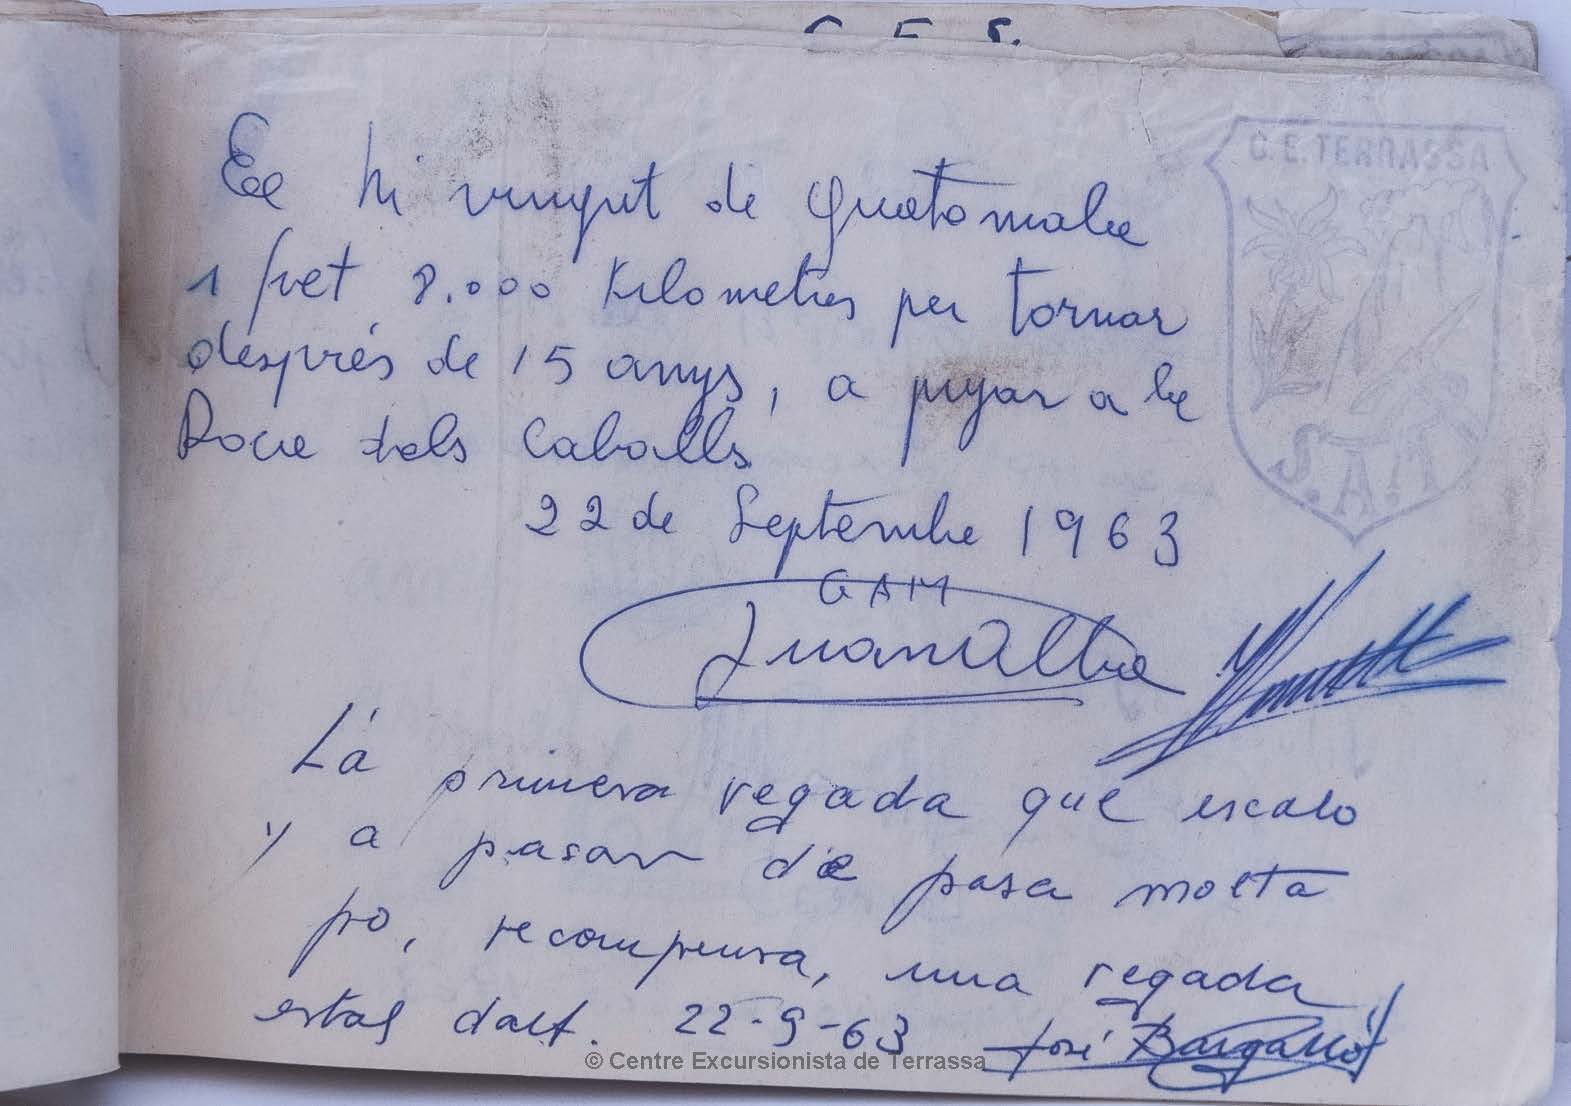 C. E. S.
C. E. TERRASSA
S.A.M
hi vingut de Guatemala
1 fet 8.000 Kilometres per tornar
després de 15 anys, a pujar a la
Roca dels Caballs
22 de Septembre 1963
GAM
Juan
La primera vegada que escalo
y a pasar de pasa molta
po, recompensa, una vegada
estas dalt. 22-9-63 José Bargalló
© Centre Excursionista de Terrassa